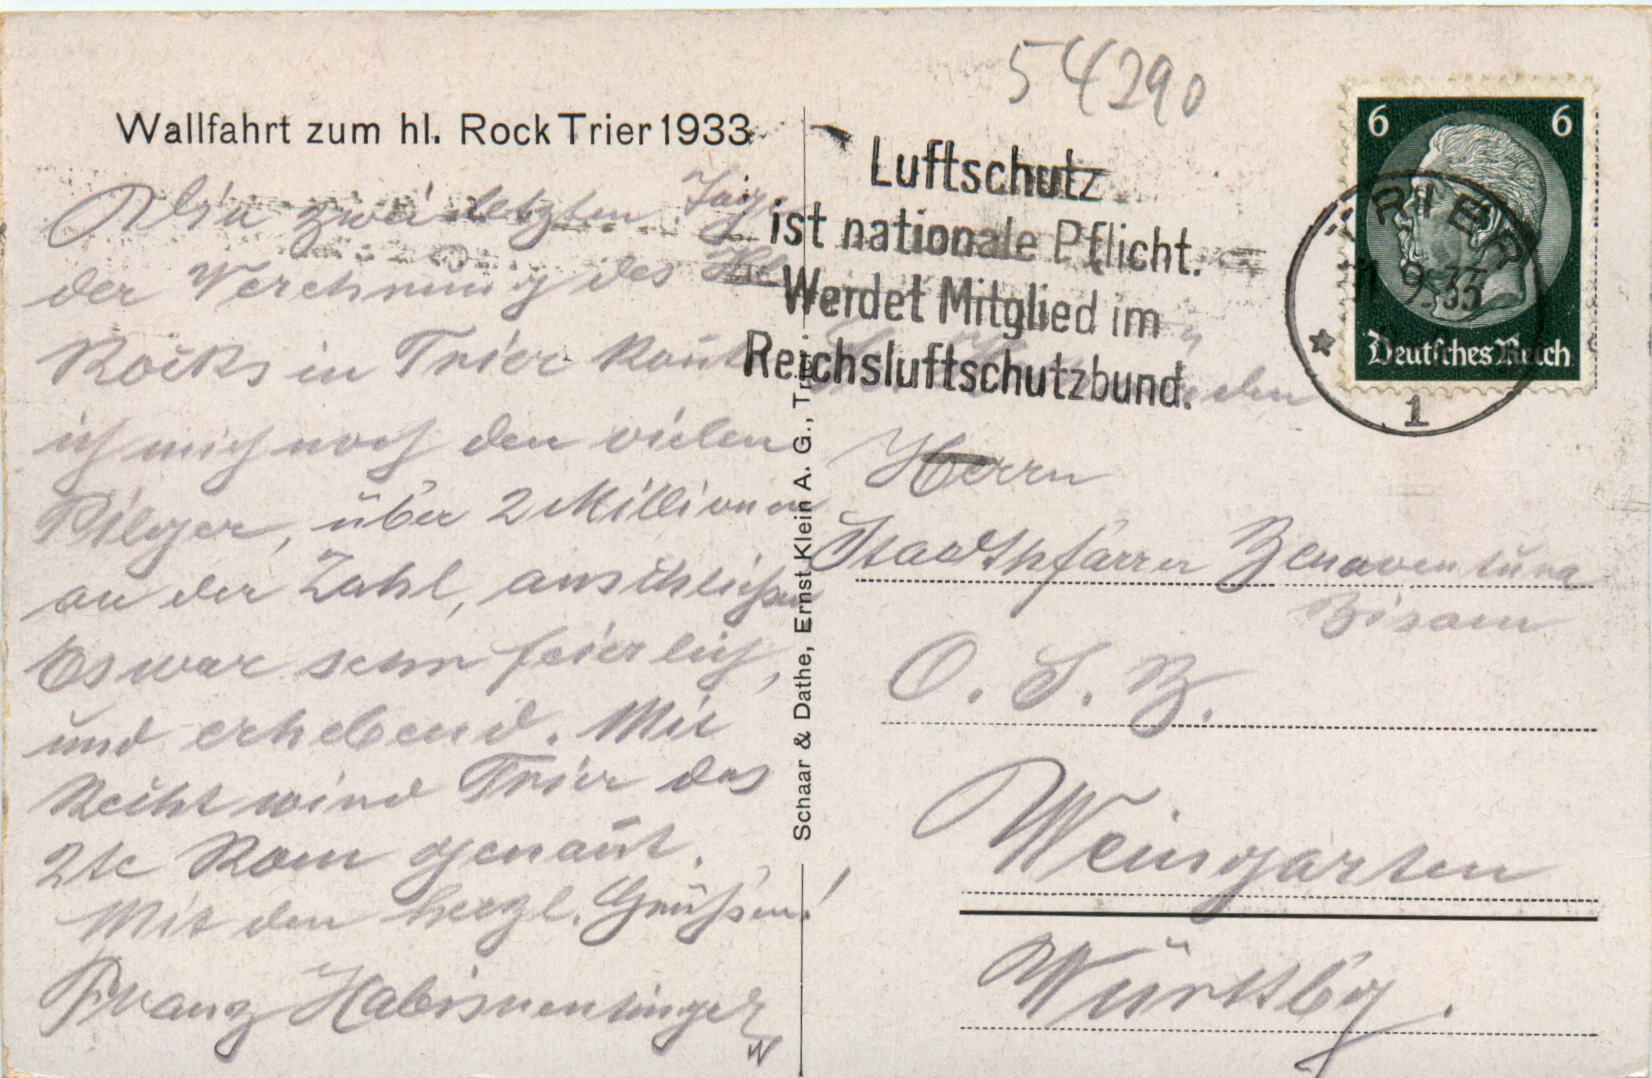 Wallfahrt zum hl. Rock Trier 1933
zwei letzten Tage
der Verehrung des Hl.
Rocks in Trier konnt
ich mich noch den vielen
Pilger, über 2 Millionen
an der Zahl, anschließen
Es war sehr feierlich,
und erhebend. Mit
Recht wird Trier das
2te Rom genannt.
Mit den herzl. Grüßen!
Franz
Schaar & Dathe, Ernst Klein A. G., Trier
54290
Luftschutz
ist nationale Pflicht.
Werdet Mitglied im
Reichsluftschutzbund.
6 6
Deutsches Reich
TRIER
11.9.33
1
den
Herrn
Stadtpfarrer Bonaventura
O. S. B.
Weingarten
Württbg.